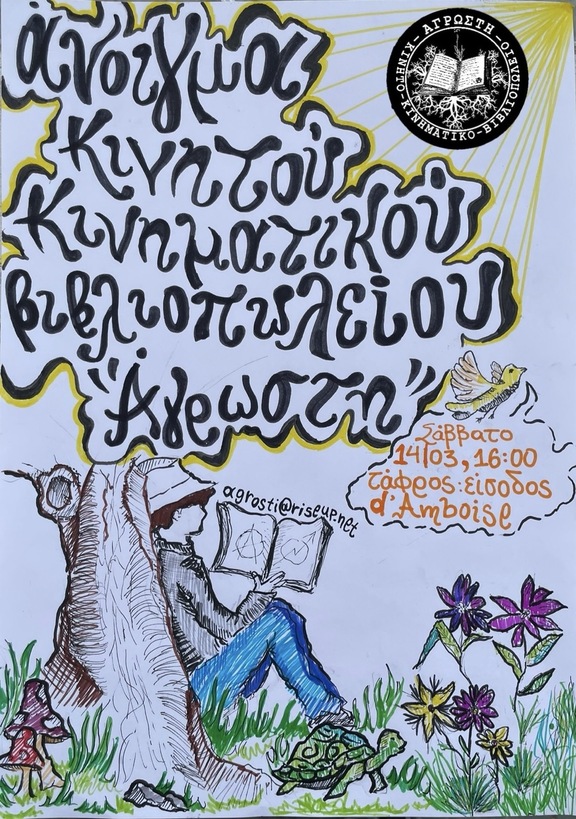 ἄνοιγμα
κινητοῦ
κινηματικοῦ
βιβλιοπωλείου
"Ἄγρωστη"
ΑΓΡΩΣΤΗ - ΚΙΝΗΤΟ - ΚΙΝΗΜΑΤΙΚΟ - ΒΙΒΛΙΟΠΩΛΕΙΟ
Σάββατο
14/03, 16:00
τάφρος: είσοδος
d'Amboise
agrosti@riseup.net